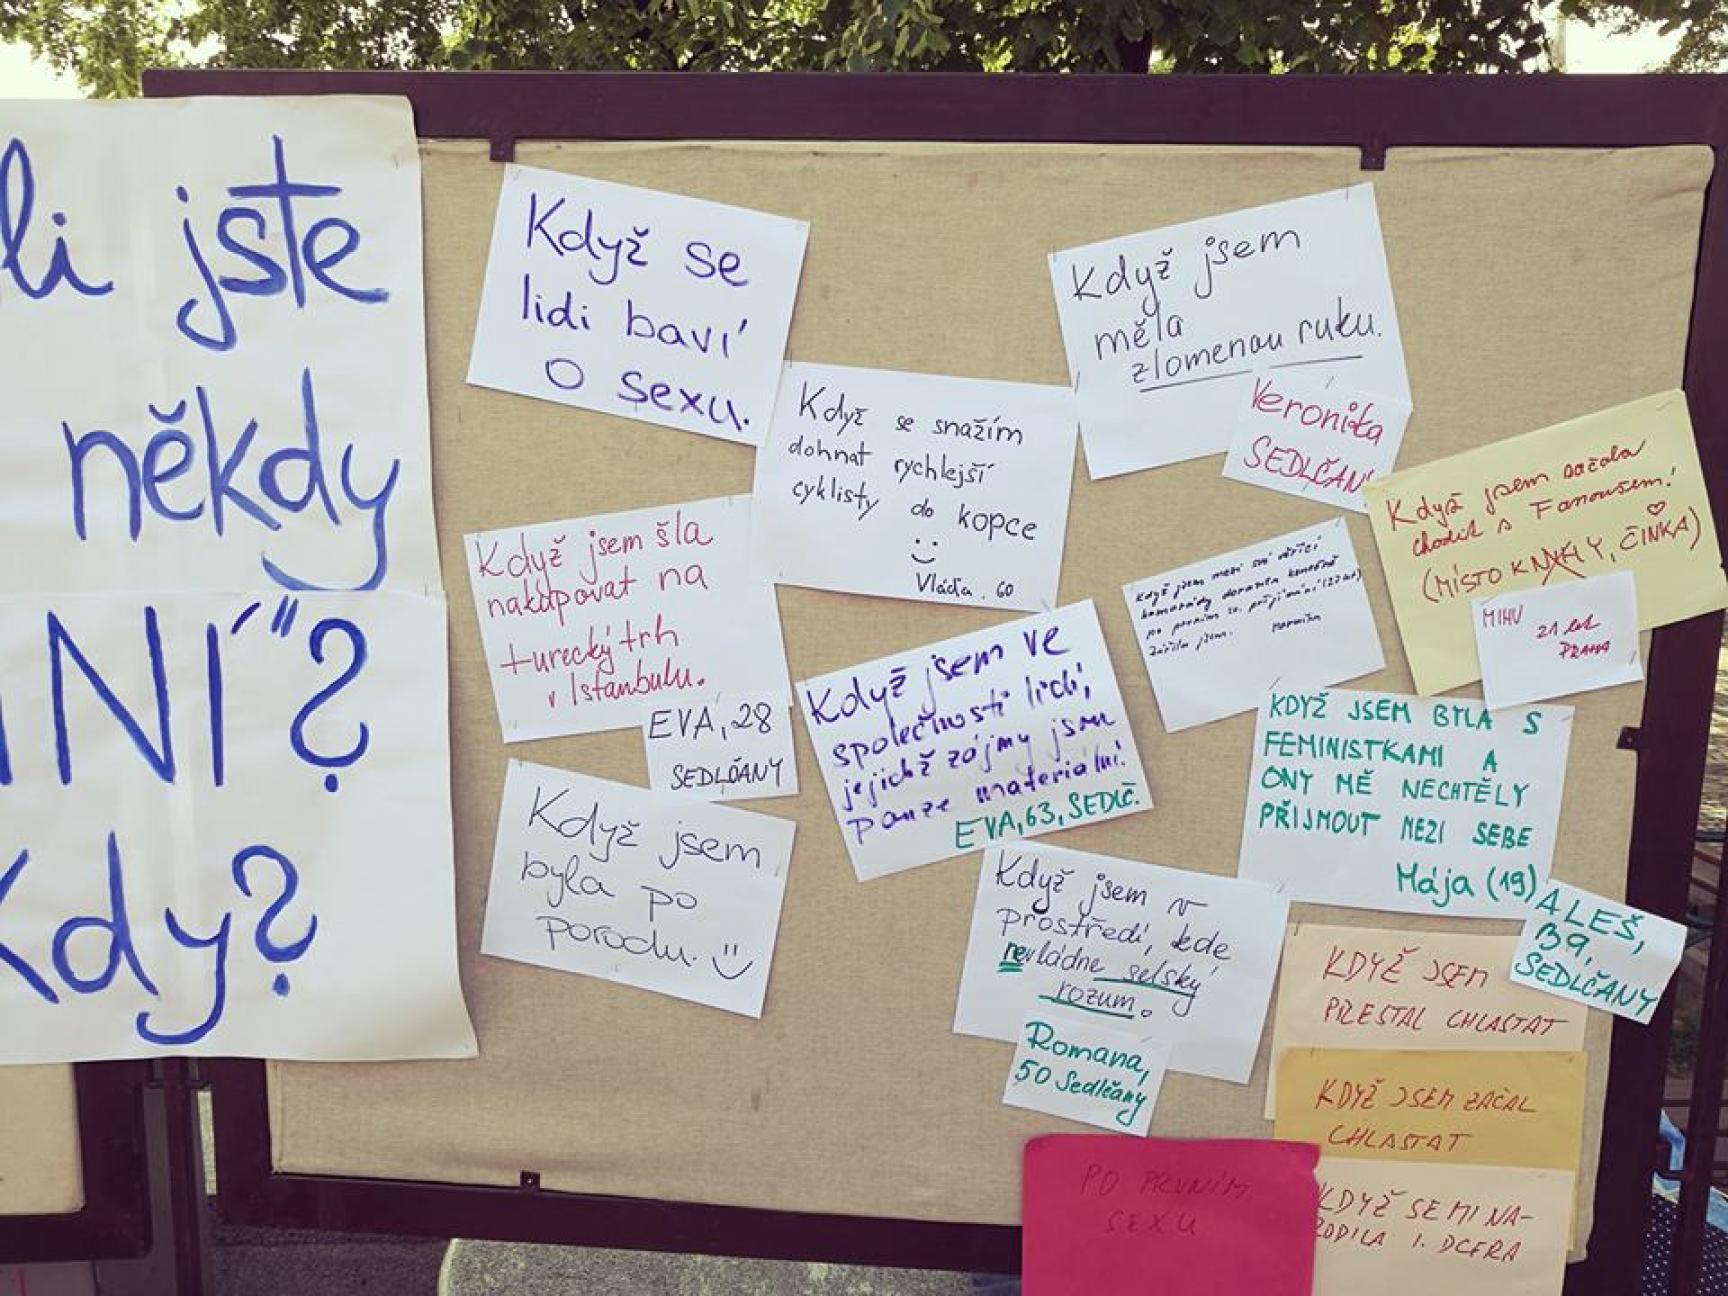 li jste
někdy
NÍ"?
Kdy?
Když se
lidi baví
o sexu.
Když jsem
měla
zlomenou ruku.
Veronika
SEDLČAN
Když se snažím
dohnat rychlejší
cyklisty do kopce
Vláďa. 60
Když jsem začala
chodit s Fanoušem!
(MÍSTO KNIHLY, ČINKA)
MIHU
21 let
PRAHA
Když jsem šla
nakupovat na
turecký trh
v Istanbulu.
EVA, 28
SEDLČANY
Když jsem mezi své věřící
kamarády
po prvním sv. přijímání
zářila jsem.
Když jsem ve
společnosti lidí,
jejichž zájmy jsou
pouze materiální.
EVA, 63, SEDLČ.
KDYŽ JSEM BYLA S
FEMINISTKAMI A
ONY MĚ NECHTĚLY
PŘIJMOUT MEZI SEBE
Mája (19)
Když jsem
byla po
porodu.
Když jsem v
prostředí, kde
nevládne selský
rozum.
Romana,
50 Sedlčany
ALEŠ,
39,
SEDLČANY
KDYŽ JSEM
PŘESTAL CHLASTAT
KDYŽ JSEM ZAČAL
CHLASTAT
KDYŽ SE MI NA-
RODILA 1. DCERA
PO PRVNÍM
SEXU